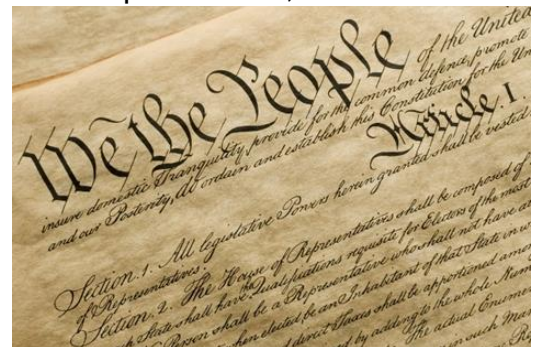 We the People of the United
insure domestic Tranquility, provide for the common defence, promote
and our Posterity, do ordain and establish this Constitution for the Un
Article. I.
Section. 1. All legislative Powers herein granted shall be vested
of Representatives.
Section. 2. The House of Representatives shall be composed of
State shall have Qualifications requisite for Electors of the most
Person shall be a Representative who shall not have
when elected, be an Inhabitant of that State in w
and direct Taxes shall be apportioned amo
by adding to the whole Num
The actual Enumer
in such Man